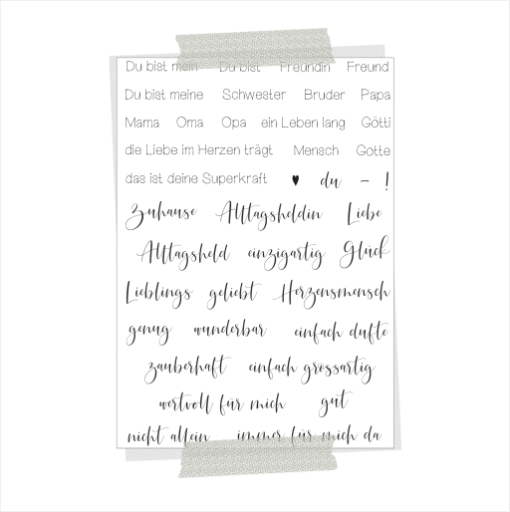 Du bist mein Du bist Freundin Freund
Du bist meine Schwester Bruder Papa
Mama Oma Opa ein Leben lang Götti
die Liebe im Herzen trägt Mensch Gotte
das ist deine Superkraft ♥ du – !
Zuhause Alltagsheldin Liebe
Alltagsheld einzigartig Glück
Lieblings geliebt Herzensmensch
genug wunderbar einfach dufte
zauberhaft einfach grossartig
wertvoll für mich gut
nicht allein immer für mich da